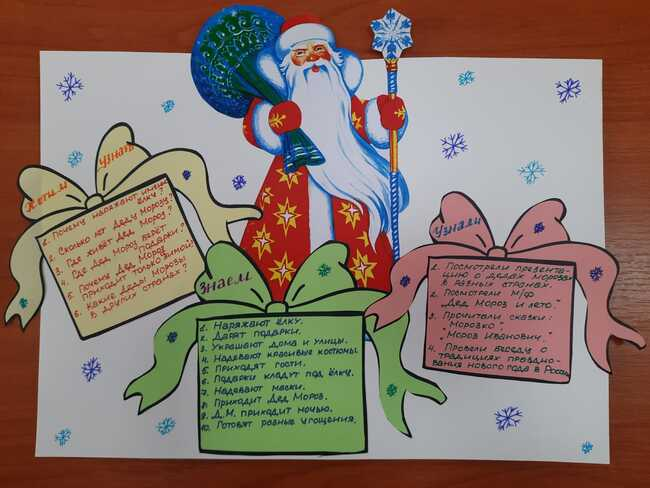 Хотим узнать
1. Почему наряжают именно
ёлку?
2. Сколько лет Деду Морозу?
3. Где живёт Дед Мороз?
4. Где Дед Мороз берёт
подарки?
5. Почему Дед Мороз
приходит только зимой?
6. Какие Деды Морозы
в других странах?
Знаем
1. Наряжают ёлку.
2. Дарят подарки.
3. Украшают дома и улицы.
4. Надевают красивые костюмы.
5. Приходят гости.
6. Подарки кладут под ёлку.
7. Надевают маски.
8. Приходит Дед Мороз.
9. Д.М. приходит ночью.
10. Готовят разные угощения.
Узнали
1. Посмотрели презента-
цию о дедах Морозах
в разных странах.
2. Посмотрели М/Ф
"Дед Мороз и лето".
3. Прочитали сказки:
"Морозко",
"Мороз Иванович".
4. Провели беседу о
традициях праздно-
вания нового года в России